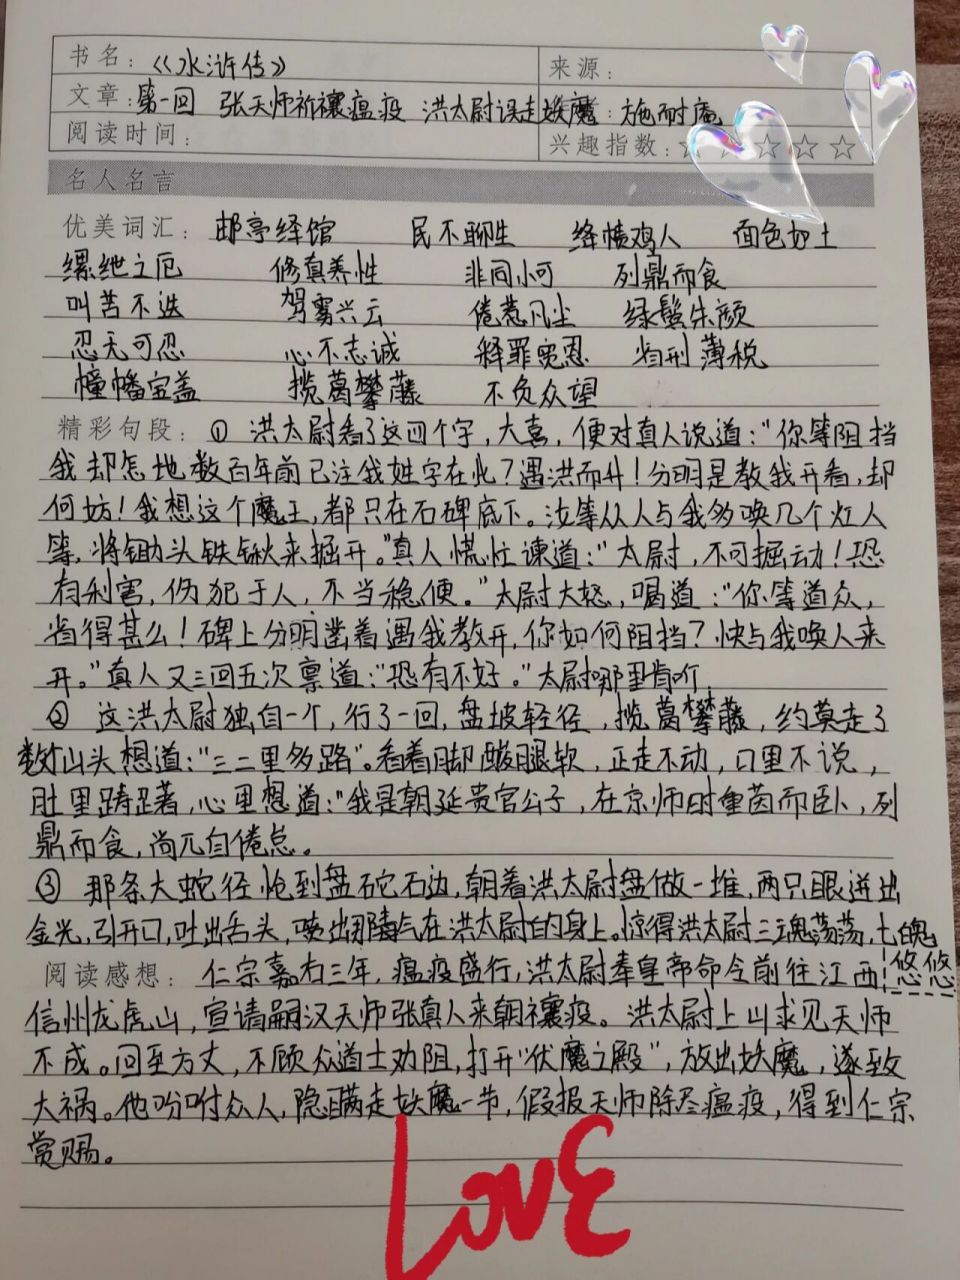 书名：《水浒传》 来源：
文章：第一回 张天师祈禳瘟疫 洪太尉误走妖魔：施耐庵
阅读时间： 兴趣指数：☆☆☆☆☆
名人名言
优美词汇：邮亭绎馆 民不聊生 绛帻鸡人 面色如土
缧绁之厄 修真养性 非同小可 列鼎而食
叫苦不迭 驾雾兴云 倦惹凡尘 绿鬓朱颜
忍无可忍 心不志诚 释罪宽恩 省刑薄税
幢幡宝盖 揽葛攀藤 不负众望
精彩句段：① 洪太尉看了这四个字，大喜，便对真人说道：“你等阻挡
我却怎地数百年前已注我姓字在此？遇洪而开！分明是教我开看，却
何妨！我想这个魔王，都只在石碑底下。汝等从人与我多唤几个灶人
等，将锄头铁锹来掘开。”真人慌忙谏道：“太尉，不可掘动！恐
有利害，伤犯于人，不当稳便。”太尉大怒，喝道：“你等道众，
省得甚么！碑上分明凿着遇我教开，你如何阻挡？快与我唤人来
开。”真人又三回五次禀道：“恐有不好。”太尉哪里肯听
② 这洪太尉独自一个，行了一回，盘坡轻径，揽葛攀藤，约莫走了
数村山头想道：“三二里多路”。看看脚酸腿软，正走不动，口里不说，
肚里踌躇，心里想道：“我是朝廷贵官公子，在京师时重茵而卧，列
鼎而食，尚兀自倦怠。
③ 那条大蛇径抢到盘砣石边，朝着洪太尉盘做一堆，两只眼迸出
金光，引开口，吐出舌头，喷出那毒气在洪太尉的身上。惊得洪太尉三魂荡荡，七魄
悠悠
阅读感想：仁宗嘉右三年，瘟疫盛行，洪太尉奉皇帝命令前往江西
信州龙虎山，宣请嗣汉天师张真人来朝禳疫。洪太尉上山求见天师
不成。回至方丈，不顾众道士劝阻，打开“伏魔之殿”，放出妖魔，遂致
大祸。他吩咐众人，隐瞒走妖魔一节，假报天师除尽瘟疫，得到仁宗
赏赐。
LOVE